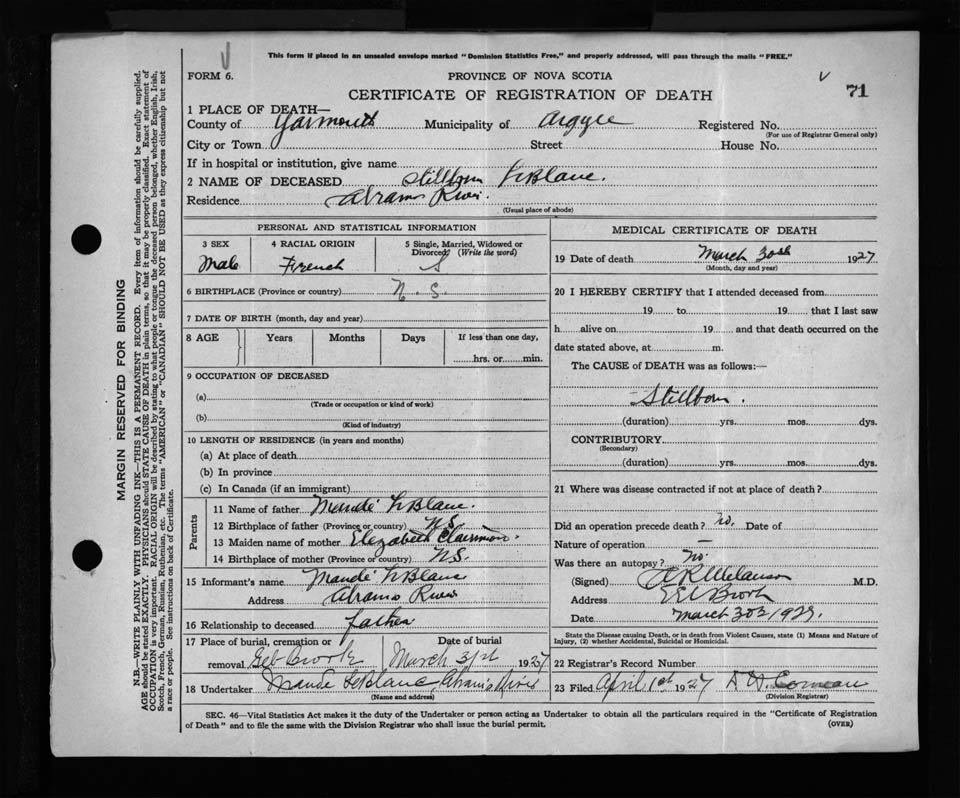 This form if placed in an unsealed envelope marked "Dominion Statistics Free," and properly addressed, will pass through the mails "FREE."
FORM 6.
PROVINCE OF NOVA SCOTIA
CERTIFICATE OF REGISTRATION OF DEATH
71
1 PLACE OF DEATH—
County of Yarmouth Municipality of Argyle Registered No.
(For use of Registrar General only)
City or Town Street House No.
If in hospital or institution, give name
2 NAME OF DECEASED Stillborn LeBlanc.
Residence Abrams River.
(Usual place of abode)
PERSONAL AND STATISTICAL INFORMATION
3 SEX 4 RACIAL ORIGIN 5 Single, Married, Widowed or Divorced (Write the word)
Male French S
6 BIRTHPLACE (Province or country) N. S.
7 DATE OF BIRTH (month, day and year)
8 AGE Years Months Days If less than one day,
hrs. or min.
9 OCCUPATION OF DECEASED
(a)
(Trade or occupation or kind of work)
(b)
(Kind of industry)
10 LENGTH OF RESIDENCE (in years and months)
(a) At place of death
(b) In province
(c) In Canada (if an immigrant)
Parents
11 Name of father LeBlanc.
12 Birthplace of father (Province or country) N.S.
13 Maiden name of mother Elizabeth
14 Birthplace of mother (Province or country) N.S.
15 Informant's name LeBlanc
Address Abrams River
16 Relationship to deceased father
17 Place of burial, cremation or removal Brook Date of burial March 31st 1927
18 Undertaker LeBlanc, Abrams River
(Name and address)
MEDICAL CERTIFICATE OF DEATH
19 Date of death March 30th 1927
(Month, day and year)
20 I HEREBY CERTIFY that I attended deceased from
19 to 19 that I last saw
h alive on 19 and that death occurred on the
date stated above, at m.
The CAUSE of DEATH was as follows:—
Stillborn.
(duration) yrs. mos. dys.
CONTRIBUTORY
(Secondary)
(duration) yrs. mos. dys.
21 Where was disease contracted if not at place of death?
Did an operation precede death? no. Date of
Nature of operation —
Was there an autopsy? no.
(Signed) Melanson M.D.
Address Brook
Date March 30
State the Disease causing Death, or in death from Violent Causes, state (1) Means and Nature of
Injury, (2) whether Accidental, Suicidal or Homicidal.
22 Registrar's Record Number
23 Filed April 1st 1927 Comeau
(Division Registrar)
SEC. 46—Vital Statistics Act makes it the duty of the Undertaker or person acting as Undertaker to obtain all the particulars required in the "Certificate of Registration
of Death" and to file the same with the Division Registrar who shall issue the burial permit.
(OVER)
MARGIN RESERVED FOR BINDING
N.B.—WRITE PLAINLY WITH UNFADING INK—THIS IS A PERMANENT RECORD. Every item of information should be carefully supplied.
AGE should be stated EXACTLY. PHYSICIANS should STATE CAUSE OF DEATH in plain terms, so that it may be properly classified. Exact statement of
OCCUPATION is very important. RACIAL ORIGIN will be described by stating to what people or tongue the deceased person belonged, whether English, Irish,
Scotch, French, German, Russian, Ruthenian, etc. The terms "AMERICAN" or "CANADIAN" SHOULD NOT BE USED as they express citizenship but not
a race or people. See instructions on back of Certificate.